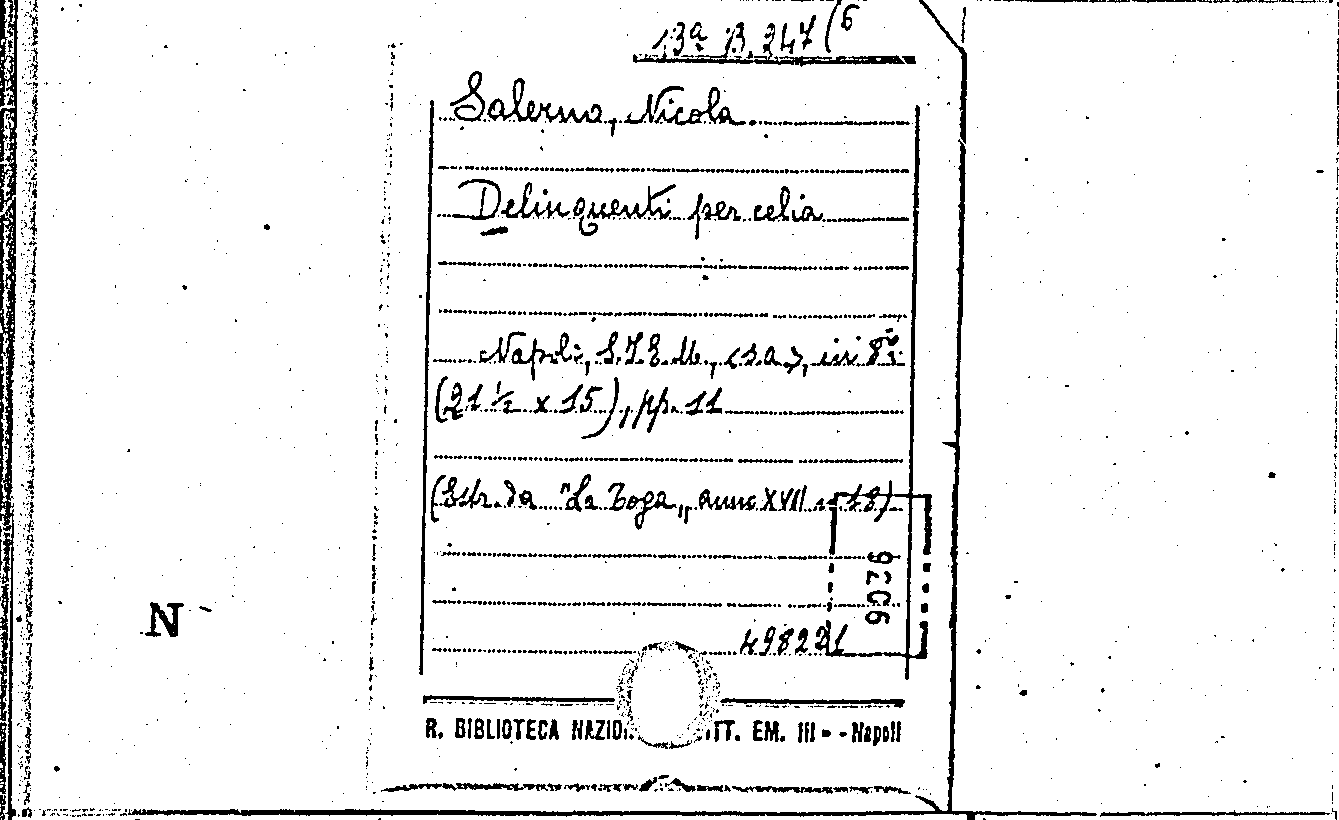 13ª B. 247 (6
Salerno, Nicola.
Delinquenti per celia
Napoli, S.I.E.M., <s.a.>, in 8º.
(21 ½ x 15), pp. 11
(Estr. da "La Toga„ anno XVII n. 18)
9206
N
498221
R. BIBLIOTECA NAZIO ITT. EM. III - - Napoli